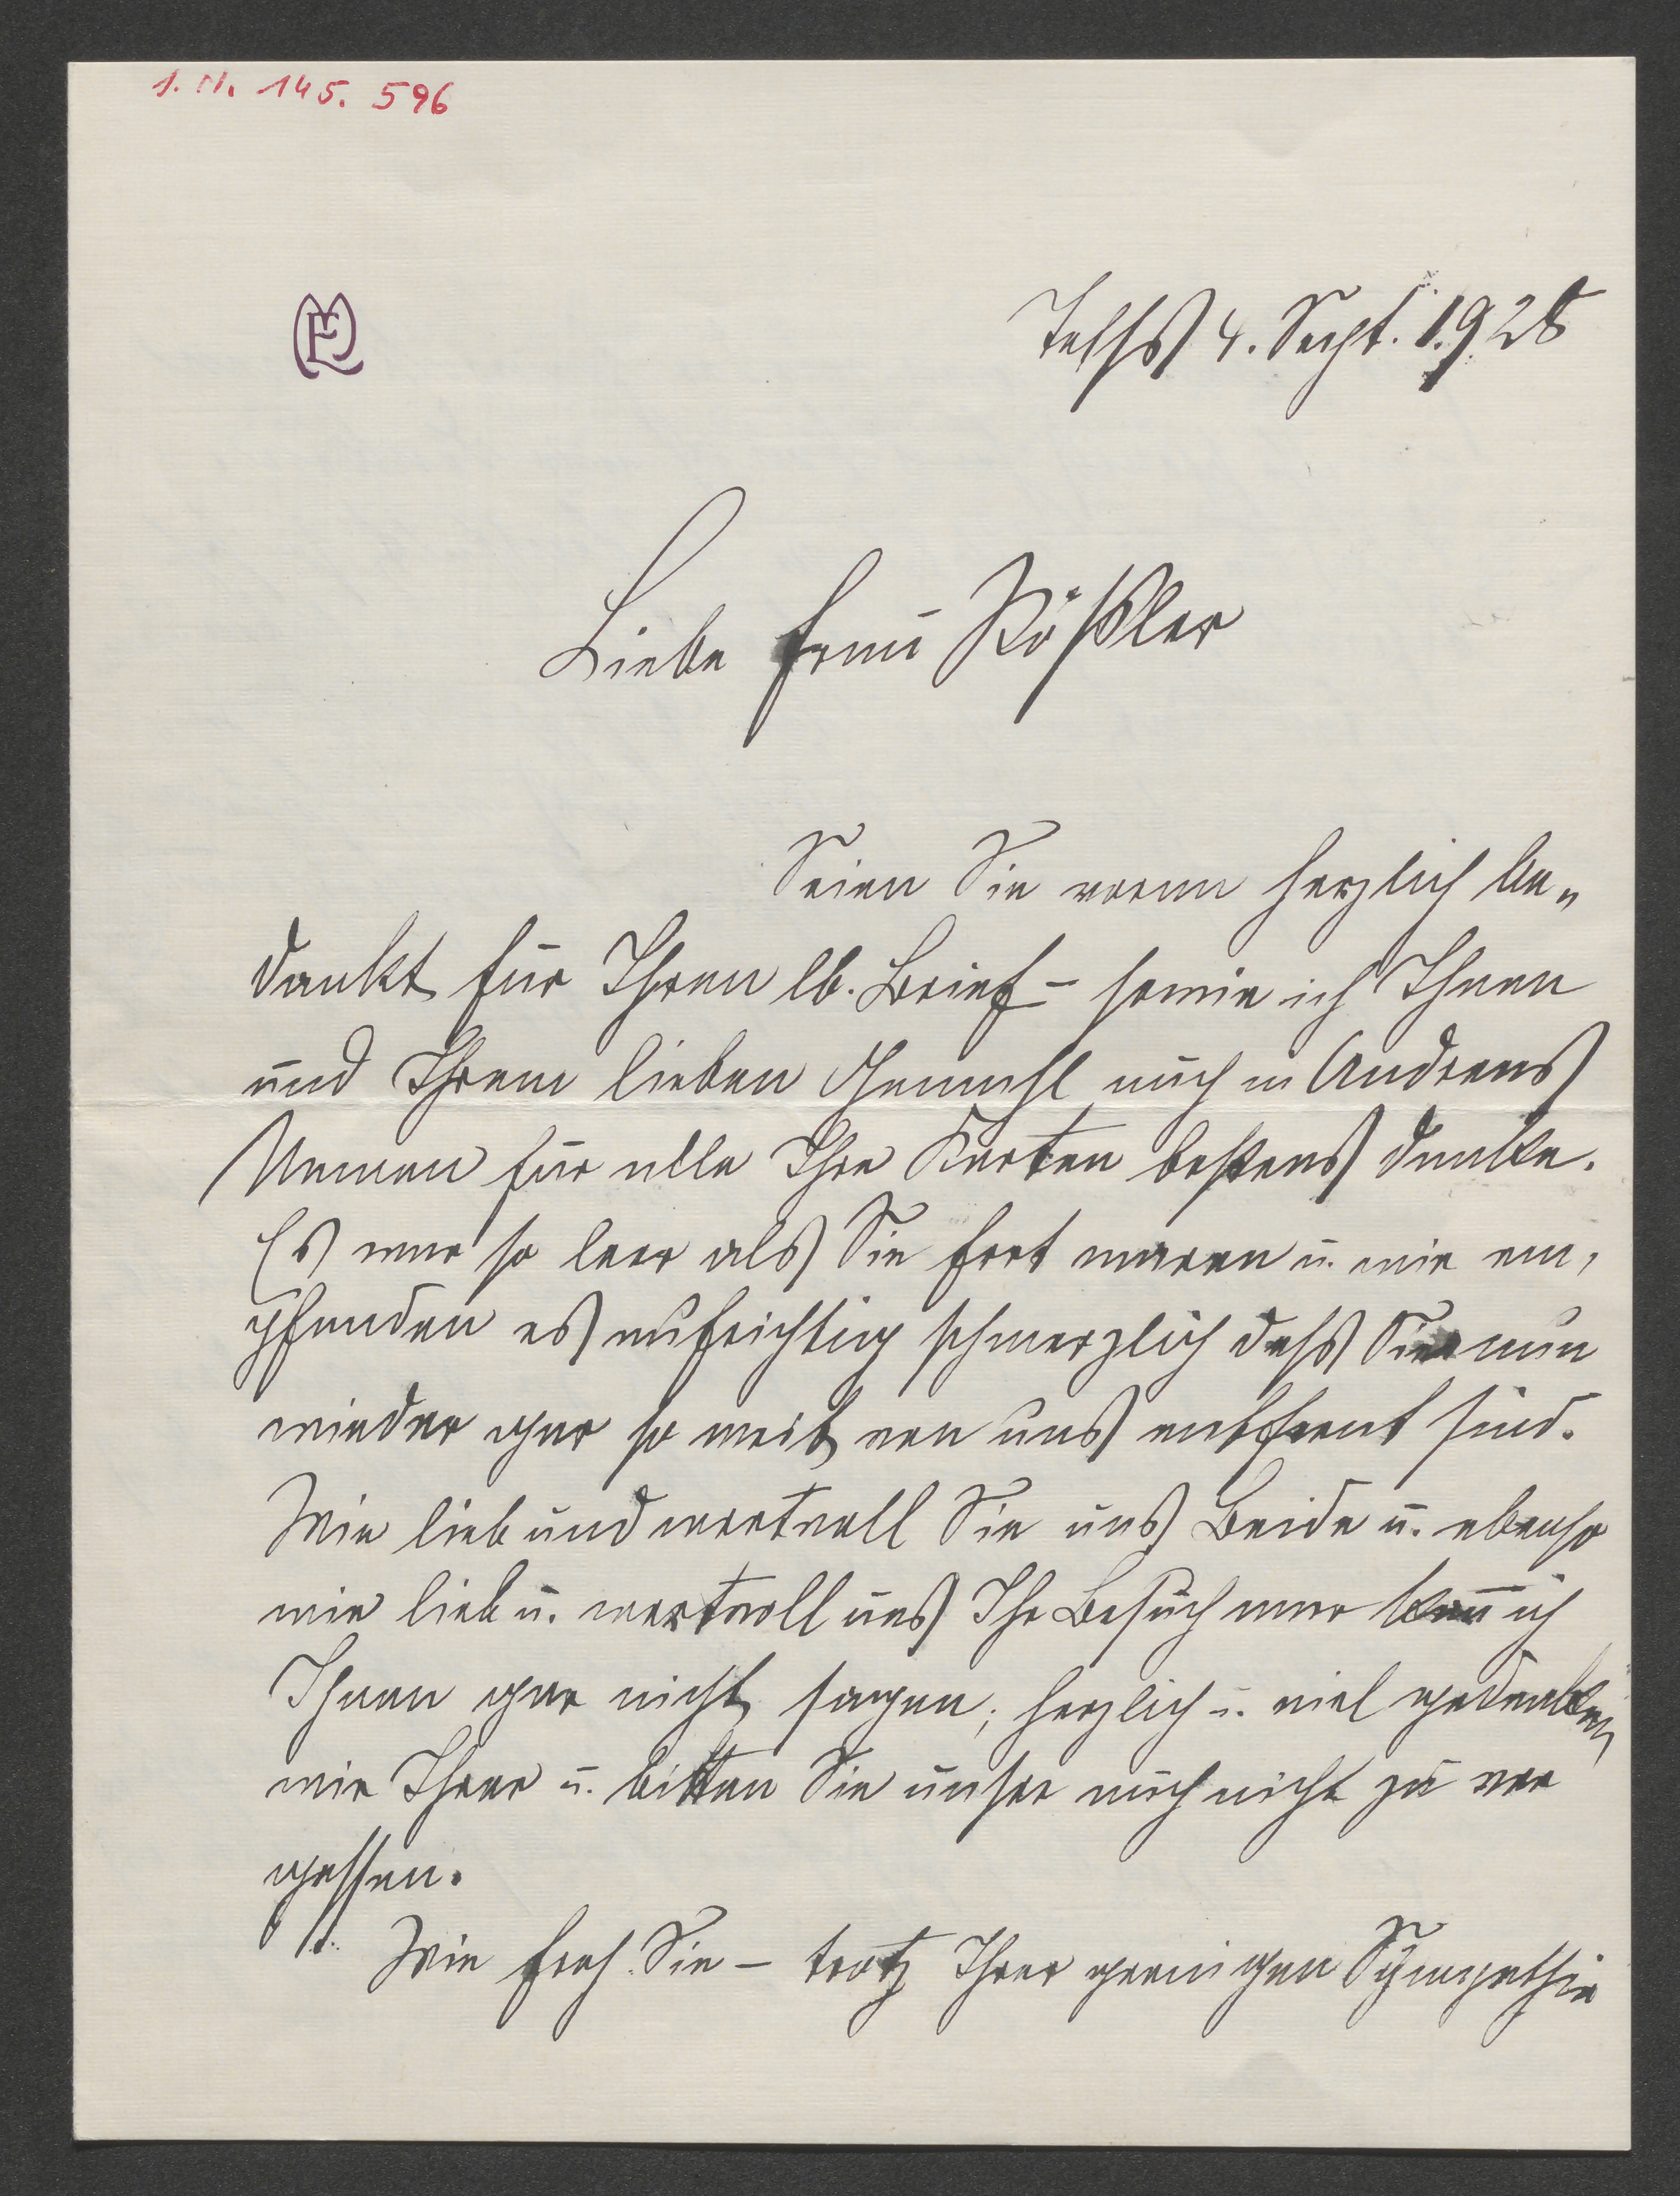 I. N. 145. 596
Telfs 4. Sept. 1925
Liebe Frau Rößler
Seien Sie warm herzlich be„
dankt für Ihren lb. Brief – sowie ich Ihnen
und Ihrem lieben Gemahl auch in Andreas
Namen für alle Ihre Karten bestens danke.
Es war so leer als Sie fort waren u. wir em„
pfanden es aufrichtig schmerzlich daß Sie nun
wieder gar so weit von uns entfernt sind.
Wie lieb und wertvoll Sie uns Beide u. ebenso
wie lieb u. wertvoll uns Ihr Besuch war kann ich
Ihnen gar nicht sagen; herzlich u. viel gedenken
wir Ihrer u. bitten Sie unser auch nicht zu ver
gessen.
Wie froh Sie – trotz Ihrer geringen Sympathie